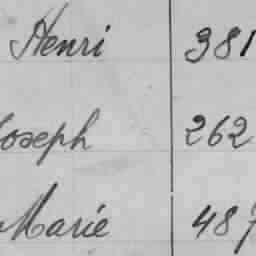 Henri 381
Joseph 262
Marie 487